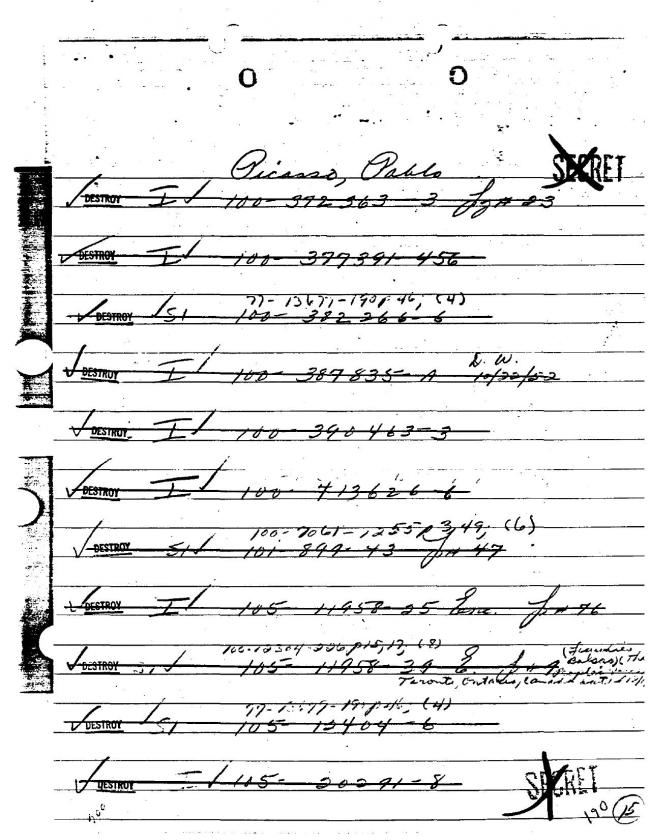 Picasso, Pablo
SECRET
DESTROY I 100- 392363-3
DESTROY I 100- 377391-456
77-13671-190p46, (4)
DESTROY SI 100- 382266-6
D. W.
DESTROY I 100- 387835- A 10/22/52
DESTROY I 100- 390463-3
DESTROY I 100- 413626-6
100-7061-1255 p 349, (6)
DESTROY SI 101- 899-43 47
DESTROY I 105- 11958-25 Enc. 76
(8)
DESTROY SI 105- 11958-39
Toronto, Ontario,
(4)
DESTROY SI 105- 12404-6
DESTROY I 105- 20291-8
SECRET
190 15